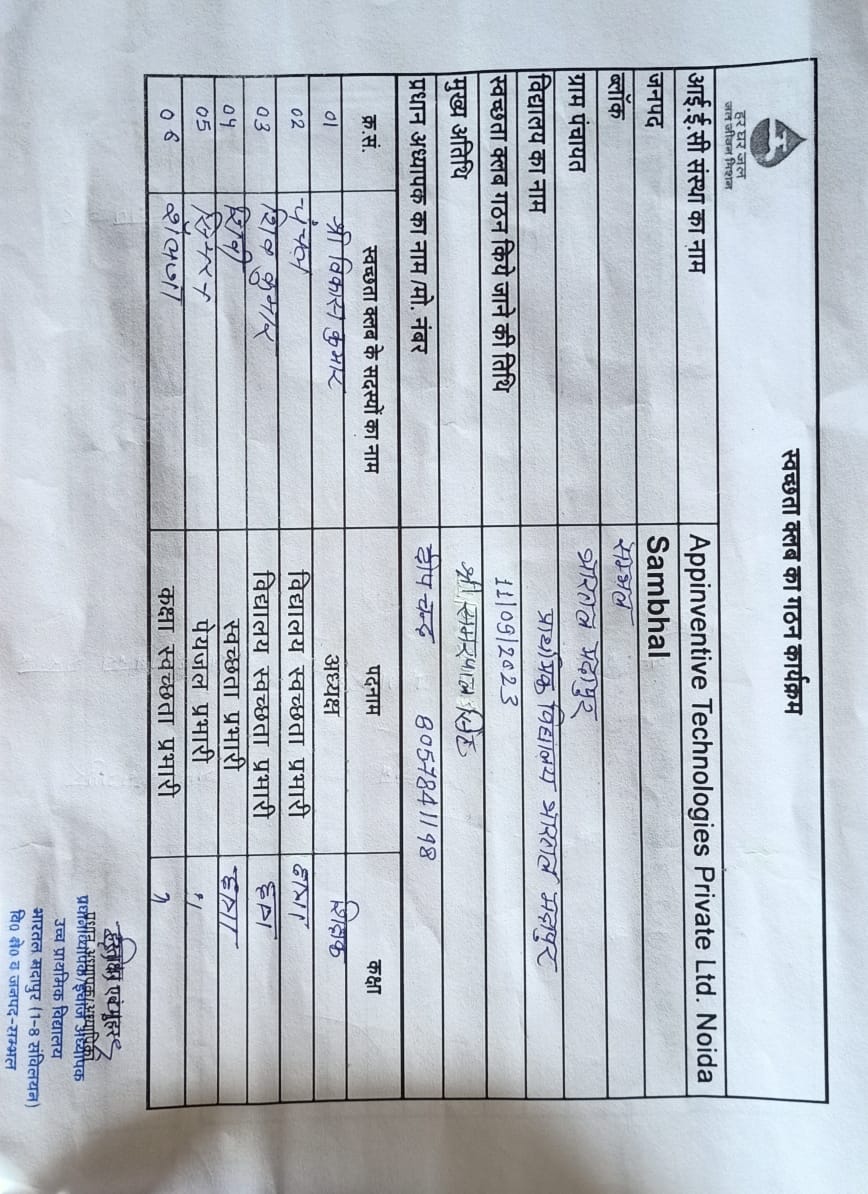 स्वच्छता क्लब का गठन कार्यक्रम
हर घर जल
जल जीवन मिशन
आई.ई.सी संस्था का नाम Appinventive Technologies Private Ltd. Noida
जनपद Sambhal
ब्लॉक सम्भल
ग्राम पंचायत भारतल मदापुर
विद्यालय का नाम प्राथमिक विद्यालय भारतल मदापुर
स्वच्छता क्लब गठन किये जाने की तिथि 11/09/2023
मुख्य अतिथि श्री समरपाल सिंह
प्रधान अध्यापक का नाम /मो. नंबर दीप चन्द 8057841198
क्र.सं. स्वच्छता क्लब के सदस्यों का नाम पदनाम कक्षा
01 श्री विकास कुमार अध्यक्ष शिक्षक
02 विद्यालय स्वच्छता प्रभारी छात्रा
03 शिव कुमार विद्यालय स्वच्छता प्रभारी छात्र
04 स्वच्छता प्रभारी छात्रा
05 सिमरन पेयजल प्रभारी "
06 कक्षा स्वच्छता प्रभारी
हस्ताक्षर एवं मुहर
उच्च प्राथमिक विद्यालय
भारतल मदापुर (1-8 संविलयन)
वि० क्षे० व जनपद-सम्भल